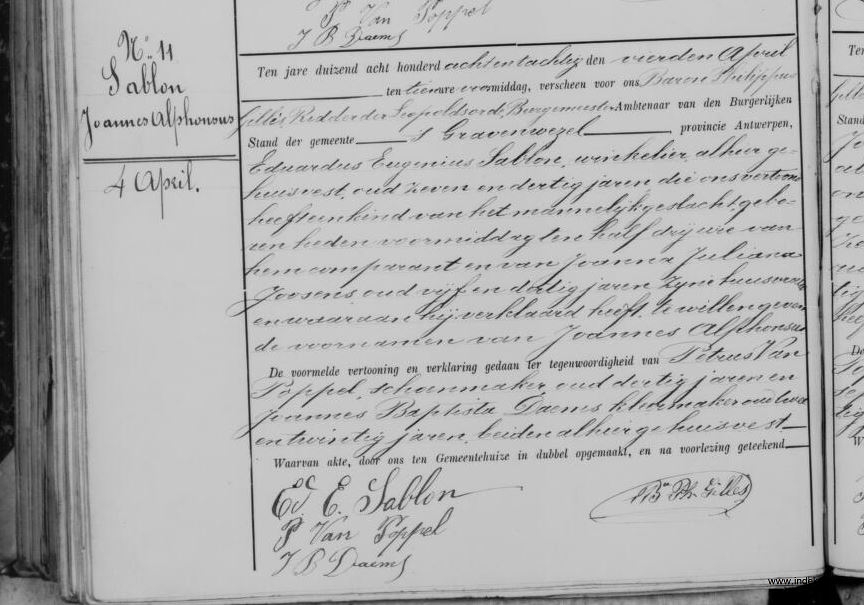 P Van Poppel
J B Daems
N° 11
Sablon
Joannes Alphonsus
4 April.
Ten jare duizend acht honderd achtentachtig den vierden April
ten tien ure voormiddag, verscheen voor ons Baron Philippus
Gillès Ridder der Leopoldsord, Burgemeester Ambtenaar van den Burgerlijken
Stand der gemeente 's Gravenwezel provincie Antwerpen,
Eduardus Eugenius Sablon, winkelier, alhier ge-
huisvest, oud zeven en dertig jaren, die ons vertoond
heeft een kind van het mannelijk geslacht, gebo-
ren heden voormiddag ten half drij ure van
hem comparant en van Joanna Juliana
Joosens oud vijf en dertig jaren zijne huisvrouw
en waaraan hij verklaard heeft te willen geven
de voornamen van Joannes Alphonsus
De voormelde vertooning en verklaring gedaan ter tegenwoordigheid van Petrus Van
Poppel, schoenmaker oud dertig jaren en
Joannes Baptista Daems kleermaker oud twee
en twintig jaren, beiden alhier gehuisvest
Waarvan akte, door ons ten Gemeentehuize in dubbel opgemaakt, en na voorlezing geteekend
Ed E. Sablon
Bon Ph. Gillès
P Van Poppel
J B Daems